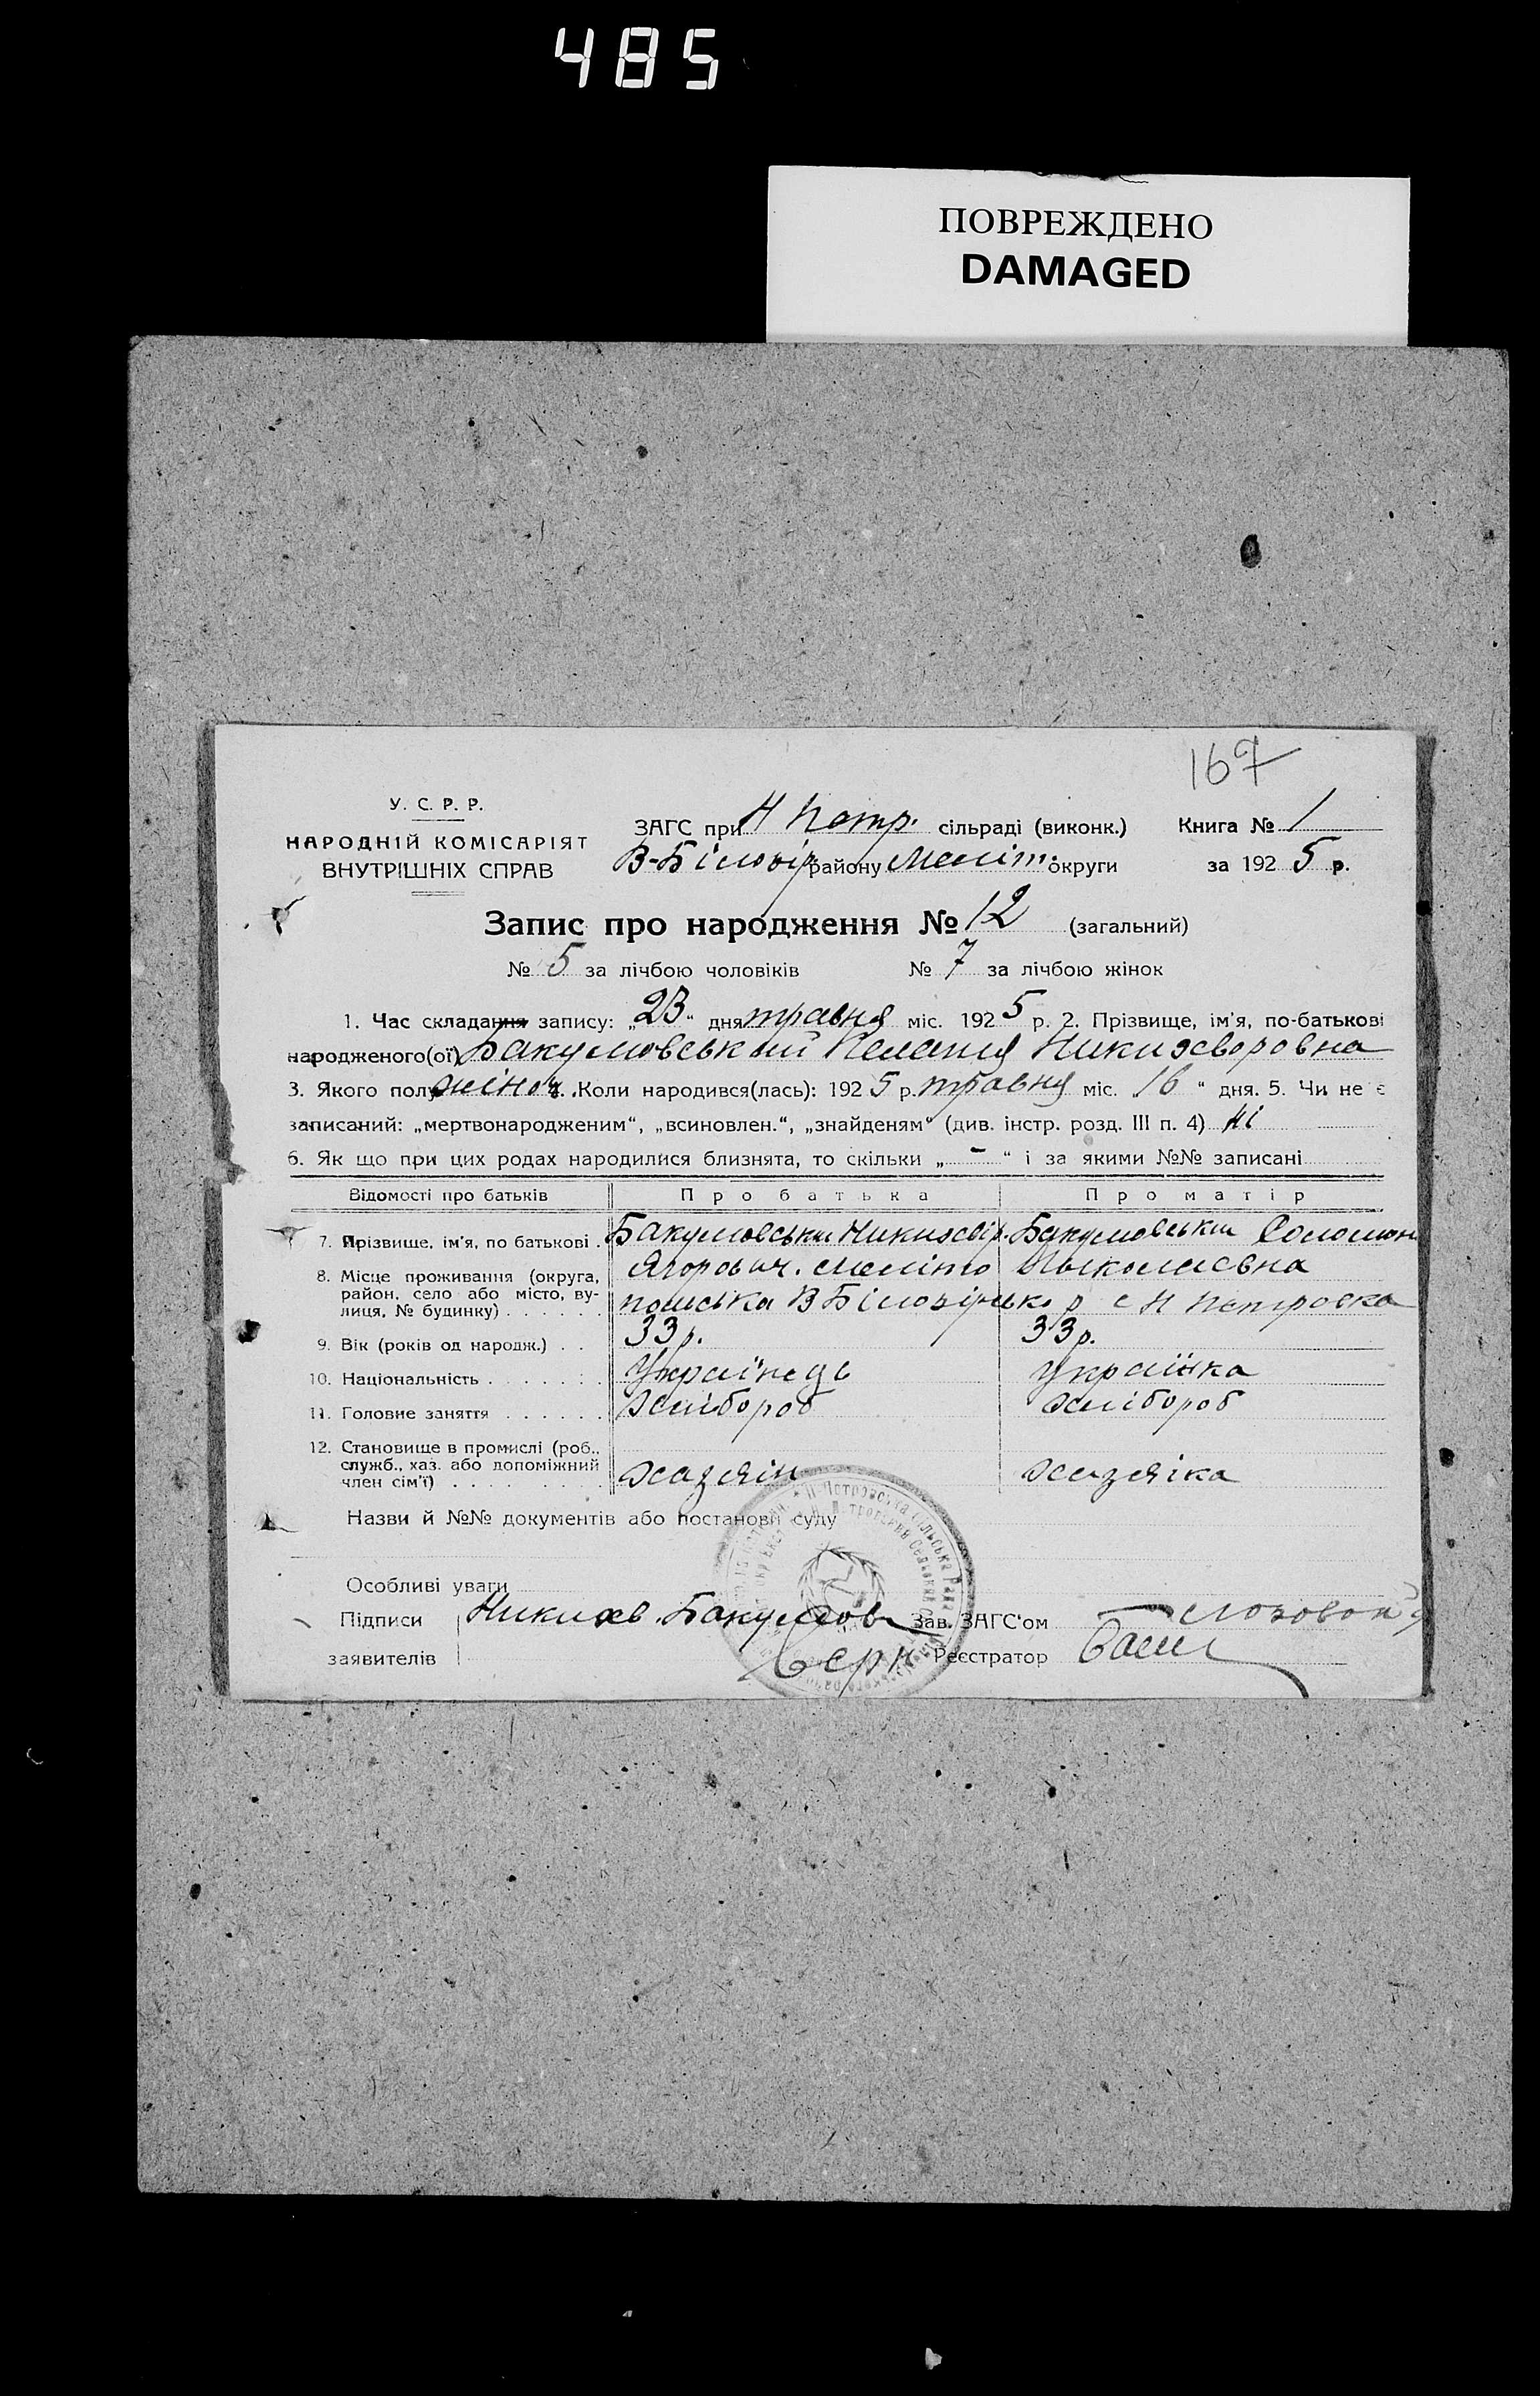 485
ПОВРЕЖДЕНО
DAMAGED
167
У. С. Р. Р.
НАРОДНІЙ КОМІСАРІЯТ
ВНУТРІШНІХ СПРАВ
ЗАГС при Н Петр. сільраді (виконк.)
В-Білозір району Меліт. округи
Книга № 1
за 1925 р.
Запис про народження № 12 (загальний)
№ 5 за лічбою чоловіків № 7 за лічбою жінок
1. Час складання запису: „23“ дня травня міс. 1925 р. 2. Прізвище, ім'я, по-батькові
народженого(ої) Бакумовський Пелагия
3. Якого полу жіноч. Коли народився(лась): 1925 р. травня міс. „16“ дня. 5. Чи не є
записаний: „мертвонародженим“, „всиновлен.“, „знайденям“ (див. інстр. розд. III п. 4) ні
6. Як що при цих родах народилися близнята, то скільки „-“ і за якими №№ записані
Відомості про батьків Про батька Про матір
7. Прізвище, ім'я, по батькові . Бакумовськи Бакумовськи Соломон
8. Місце проживання (округа, район, село або місто, вулиця, № будинку) . . . . . .
Ягорович. Меліто Мыколаєвна
польська В Білозірсько р с Н Петровка
9. Вік (років од народж.) . . 33 р. 33 р.
10. Національність . . . . . . Українець Українка
11. Головне заняття . . . . . . Хлібороб Хлібороб
12. Становище в промислі (роб., служб., хаз. або допоміжний член сім'ї) . . . . . . . . Хазяїн Хазяіка
Назви й №№ документів або постанови суду
Особливі уваги
Підписи
заявителів
Зав. ЗАГС'ом
Реєстратор